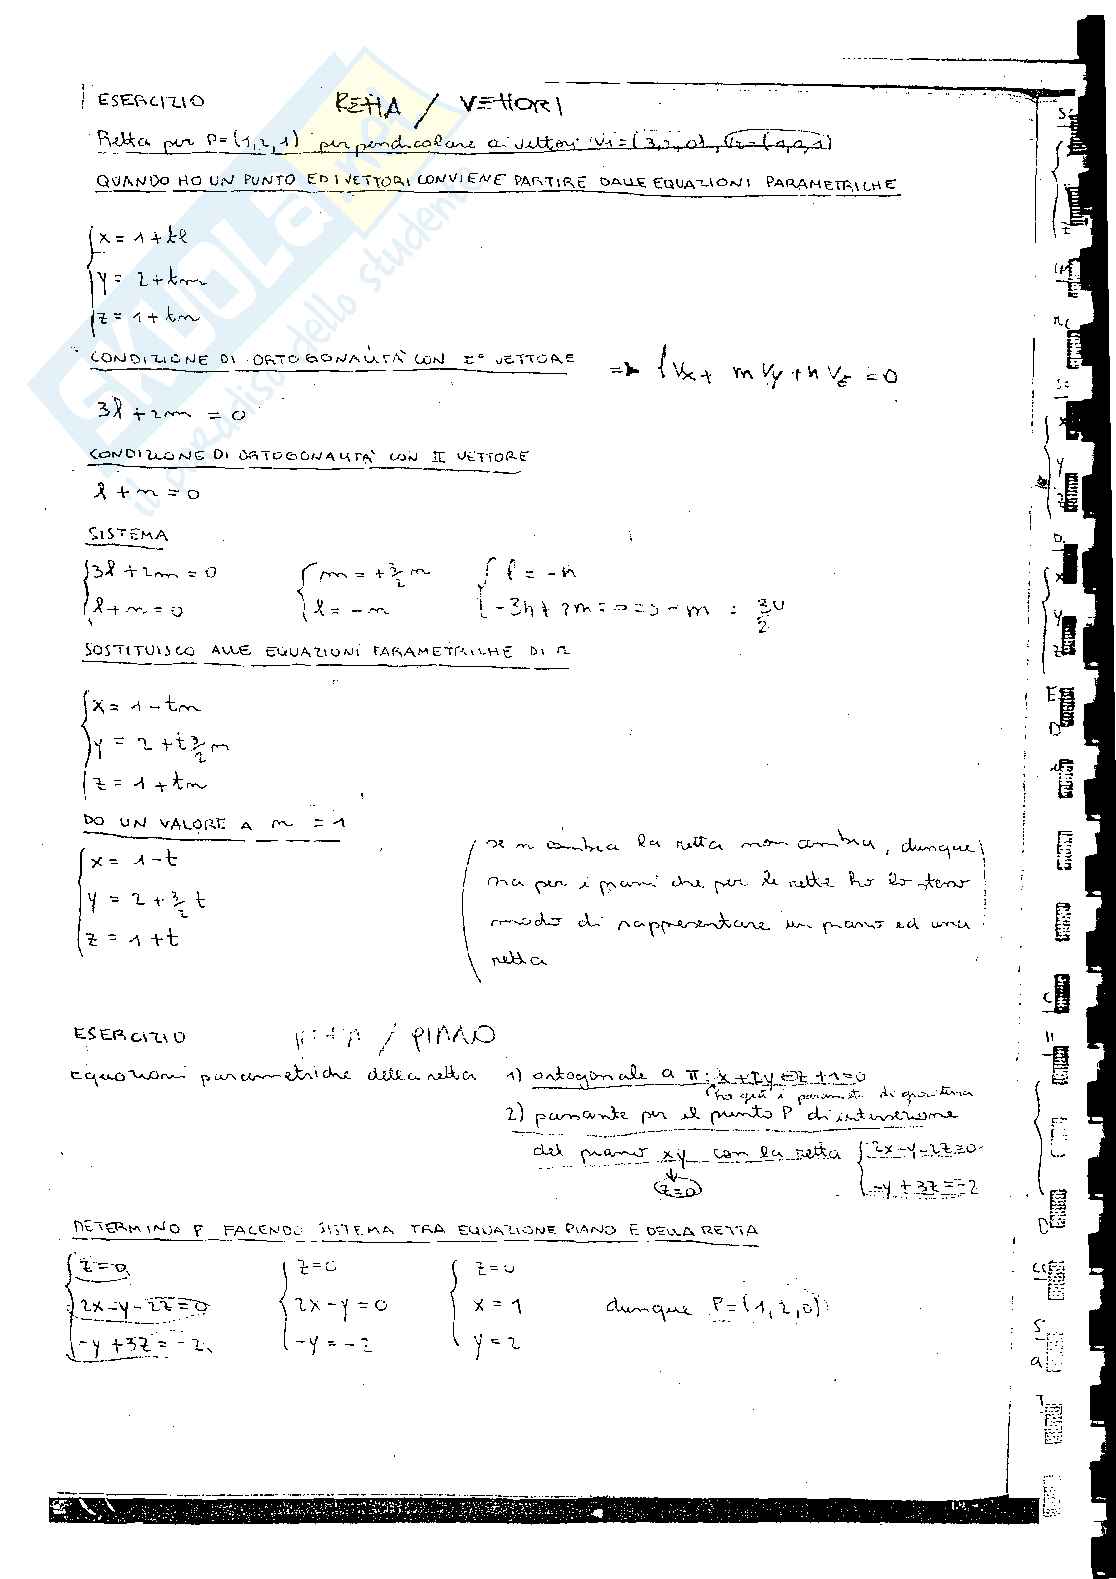 ESERCIZIO RETTA / VETTORI
Retta per P=(1,2,1) perpendicolare ai vettori V1=(3,2,0), V2=(1,0,1)
QUANDO HO UN PUNTO ED I VETTORI CONVIENE PARTIRE DALLE EQUAZIONI PARAMETRICHE
x = 1 + tl
y = 2 + tm
z = 1 + tn
CONDIZIONE DI ORTOGONALITÀ CON I° VETTORE => lVx + mVy + nVz = 0
3l + 2m = 0
CONDIZIONE DI ORTOGONALITÀ CON II VETTORE
l + n = 0
SISTEMA
3l + 2m = 0 m = +3/2 n l = -n
l + n = 0 l = -n -3n + 2m = 0 => m = 3n/2
SOSTITUISCO ALLE EQUAZIONI PARAMETRICHE DI r
x = 1 - tn
y = 2 + t 3/2 n
z = 1 + tn
DO UN VALORE A n = 1
x = 1 - t
y = 2 + 3/2 t
z = 1 + t
(se n cambia la retta non cambia, dunque
sia per i piani che per le rette ho lo stesso
modo di rappresentare un piano ed una
retta
ESERCIZIO / PIANO
Equazioni parametriche della retta 1) ortogonale a π:
ho già i paramet. di
2) passante per il punto P di intersezione
del piano xy con la retta 2x-y-2z=0
z=0 -y+3z=-2
DETERMINO P FACENDO SISTEMA TRA EQUAZIONE PIANO E DELLA RETTA
z=0 z=0 z=0
2x-y-2z=0 2x-y=0 x=1 dunque P=(1,2,0)
-y+3z=-2 -y=-2 y=2
SKUOLA.net
il paradiso dello studente